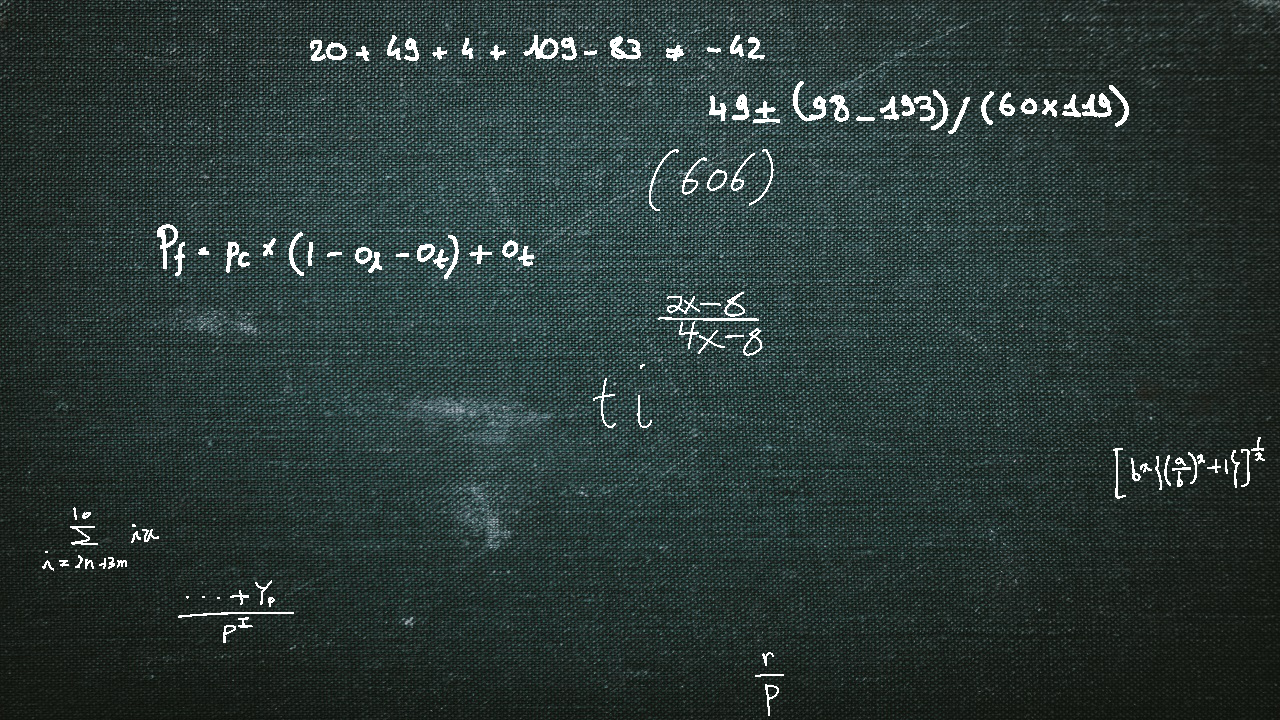 20 + 49 + 4 + 109 - 83 ≠ -42
49 ± (98 - 193) / (60 × 119)
(606)
P_f = p_c × (1 - o_1 - o_t) + o_t
\frac{2x-8}{4x-8}
t i
[b^x{(\frac{a}{b})^x + 1}]^{\frac{1}{x}}
\sum_{i=2n+3m}^{10} ix
\frac{\cdots + Y_p}{p^I}
\frac{r}{p}